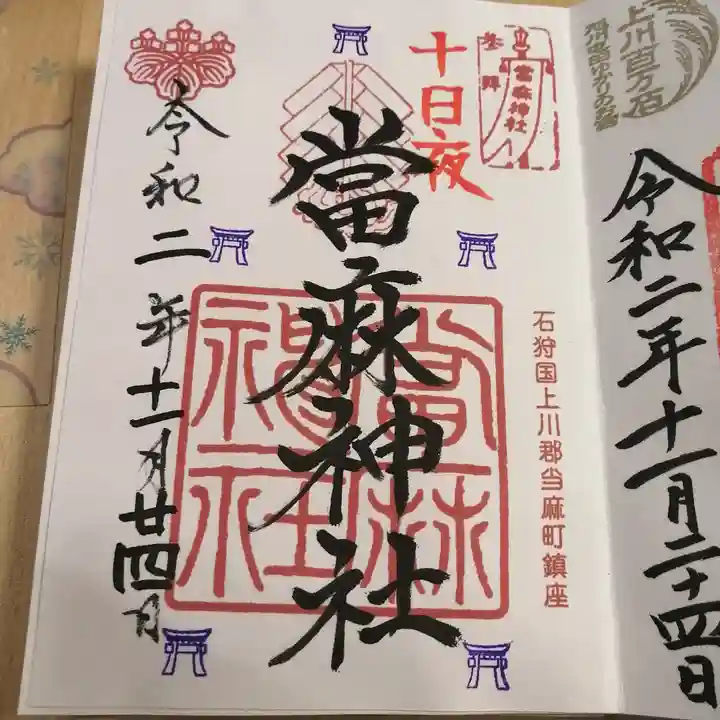 上川百万石
令和二年十一月二十四日
参拝
當麻神社
十日夜
石狩国上川郡当麻町鎮座
當麻神社
令和二年十一月廿四日